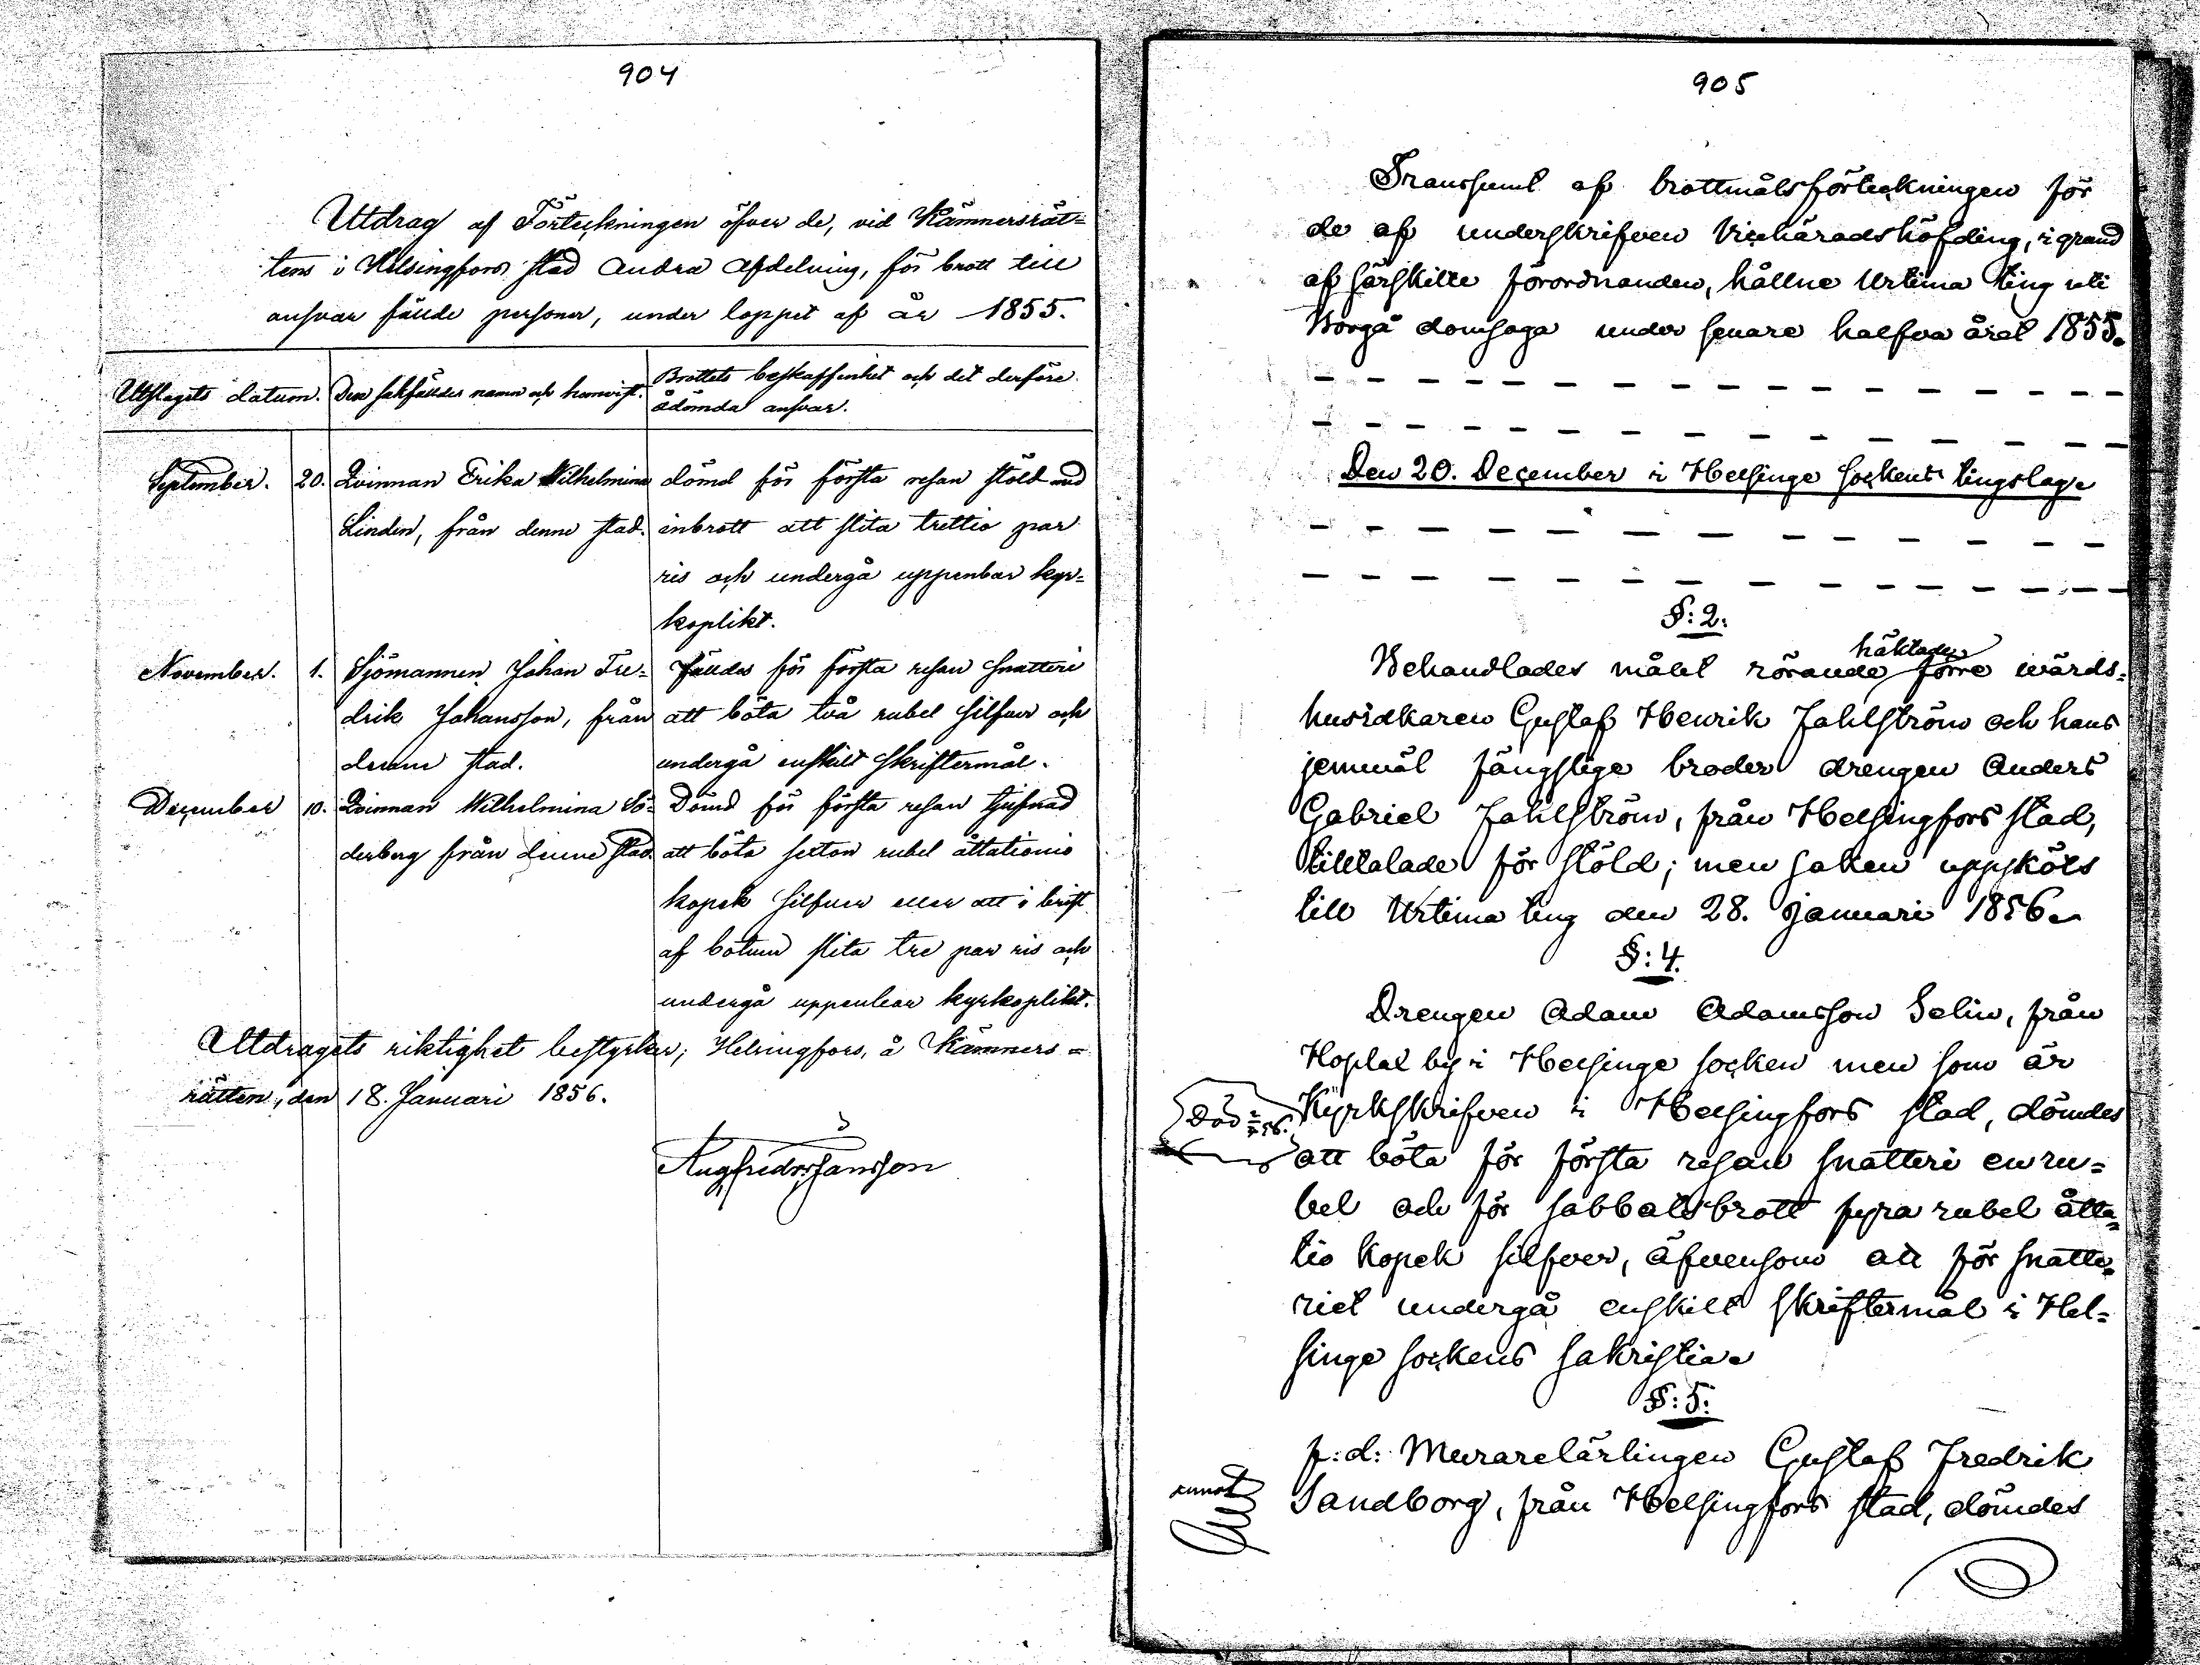 904
Utdrag af Förteckningen öfver de, vid Kämnersrät=
tens i Helsingfors stad Andra Afdelning, för brott till
ansvar fällde personer, under loppet af år 1855.
Utslagets datum. Den sakfälldes namn och hemvist. Brottets beskaffenhet och det derföre
ådömda ansvar.
September. 20. Qvinnan Erika Wilhelmina dömd för första resan stöld med
Linden, från denne stad. inbrott att slita trettio par
ris och undergå uppenbar kyr=
koplikt.
November. 1. Sjömannen Johan Fre= Fälldes för första resan snatteri
drik Johansson, från att böta två rubel silfver och
denne stad. undergå enskilt skriftermål.
December 10. Qvinnan Wilhelmina Sö= Dömd för första resan tjufnad
derberg från denne stad. att böta sexton rubel åttationio
kopek silfver eller att i brist
af botum slita tre par ris och
undergå uppenbar kyrkoplikt.
Utdragets riktighet bestyrker; Helsingfors, å Kämners=
rätten, den 18. Januari 1856.
905
Transsumt af brottmålsförteckningen för
de af underskrifven Vicehäradshöfding, i grund
af särskilte förordnanden, hållne Urtima ting uti
Borgå domsaga under senare halfva året 1855.
Den 20. December i Helsinge sockens tingslag.
§: 2:
häktade
Behandlades målet rörande förre wärds=
husidkaren Gustaf Henrik Fahlström och hans
jemväl fängslige broder drengen Anders
Gabriel Fahlström, från Helsingfors stad,
tilltalade för stöld; men saken uppsköts
till Urtima ting den 28. Januari 1856.
§: 4.
Drengen Adam Adamsson Selin, från
Hoplax by i Helsinge socken men som är
Kyrkskrifven i Helsingfors stad, dömdes
Död
att böta för första resan snatteri en ru=
bel och för sabbatsbrott fyra rubel åtta=
tio kopek silfver, äfvensom att för snatte=
riet undergå enskilt skriftermål i Hel=
singe sockens sakristia.
§: 5:
f: d: Murarelärlingen Gustaf Fredrik
Sandborg, från Helsingfors stad, dömdes